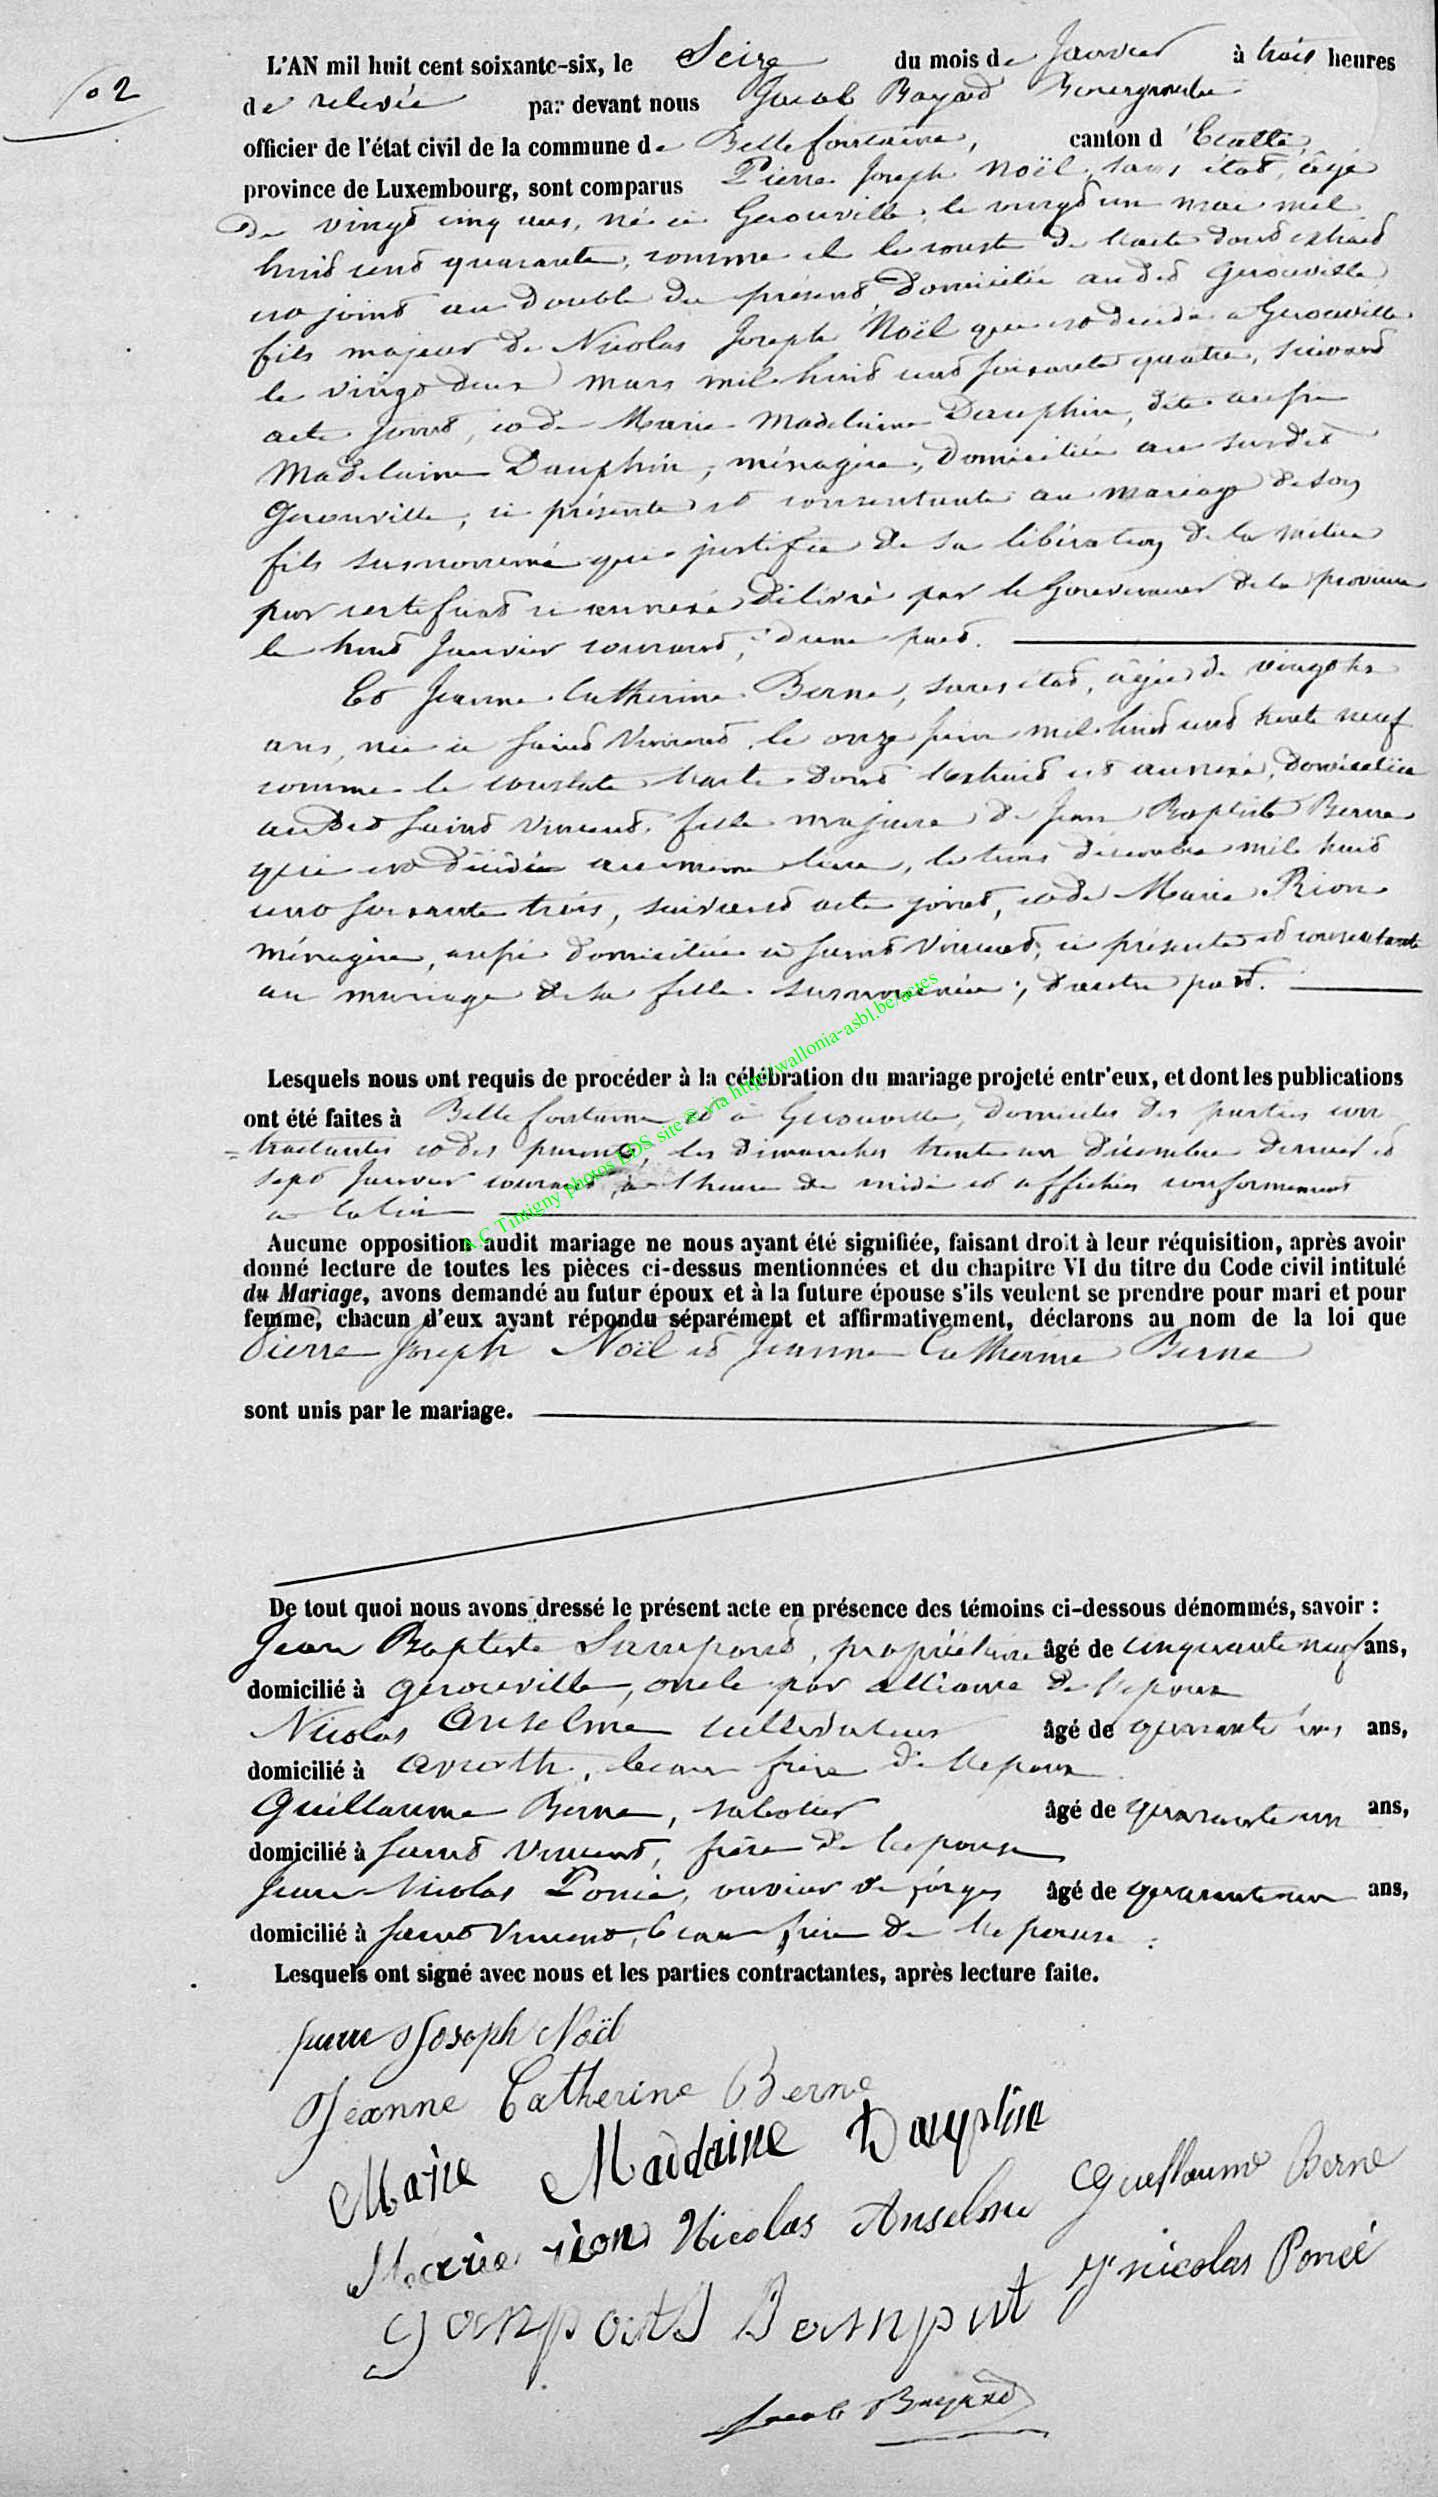 No 2
L'AN mil huit cent soixante-six, le Seize du mois de Janvier à trois heures
de relevée par devant nous Jacob Bayard Bourgmestre
officier de l'état civil de la commune de Bellefontaine, canton d'Etalle,
province de Luxembourg, sont comparus Pierre Joseph Noël, sans état, âgé
de vingt cinq ans, né à Gerouville, le vingt un mai mil
huit cent quarante, comme il le conste de l'acte dont extrait
est joint au double du présent, domicilié audit Gerouville
fils majeur de Nicolas Joseph Noël qui est décédé à Gerouville
le vingt deux mars mil huit cent soixante quatre, suivant
acte joint, et de Marie Madelaine Dauphin, dite aussi
Madelaine Dauphin, ménagère, domiciliée au susdit
Gerouville, ci présente et consentante au mariage de son
fils susnommé qui justifie de sa libération de la milice
par certificat ci annexé délivré par le Gouverneur de la province
le huit Janvier courant, d'une part.
Et Jeanne Catherine Berne, sans état, âgée de vingt six
ans, née à Saint Vincent, le onze juin mil huit cent trente neuf
comme le constate l'acte dont l'extrait est annexé, domiciliée
audit Saint Vincent, fille majeure de Jean Baptiste Berne
qui est décédé au même lieu, le trois décembre mil huit
cent soixante trois, suivant acte joint, et de Marie Rion
ménagère, aussi domiciliée à Saint Vincent, ci présente et consentante
au mariage de sa fille susnommée; d'autre part.
Lesquels nous ont requis de procéder à la célébration du mariage projeté entr'eux, et dont les publications
ont été faites à Bellefontaine et à Gerouville, domiciles des parties con
=tractantes et des parents, les Dimanches trente un Décembre dernier et
sept Janvier courant, à l'heure de midi et affichées conformément
a la loi
Aucune opposition audit mariage ne nous ayant été signifiée, faisant droit à leur réquisition, après avoir
donné lecture de toutes les pièces ci-dessus mentionnées et du chapitre VI du titre du Code civil intitulé
du Mariage, avons demandé au futur époux et à la future épouse s'ils veulent se prendre pour mari et pour
femme, chacun d'eux ayant répondu séparément et affirmativement, déclarons au nom de la loi que
Pierre Joseph Noël et Jeanne Catherine Berne
sont unis par le mariage.
A.C Tintigny photos EDS site © via http://wallonia-asbl.be/actes
De tout quoi nous avons dressé le présent acte en présence des témoins ci-dessous dénommés, savoir :
Jean Baptiste propriétaire âgé de cinquante neuf ans,
domicilié à Gerouville, oncle par alliance de l'époux
Nicolas Anselme cultivateur âgé de quarante ans,
domicilié à Avioth, beau frère de l'époux
Guillaume Berne, sabotier âgé de quarante un ans,
domicilié à Saint Vincent, frère de l'épouse
Jean Nicolas Poncé, ouvrier de forges âgé de quarante un ans,
domicilié à Saint Vincent, beau frère de l'épouse.
Lesquels ont signé avec nous et les parties contractantes, après lecture faite.
pierre Joseph Noël
Jeanne Catherine Berne
Marie Madelaine Dauphin
Guillaume Berne
Marie rion Nicolas Anselme
Jn nicolas Poncé
Jacob Bayard